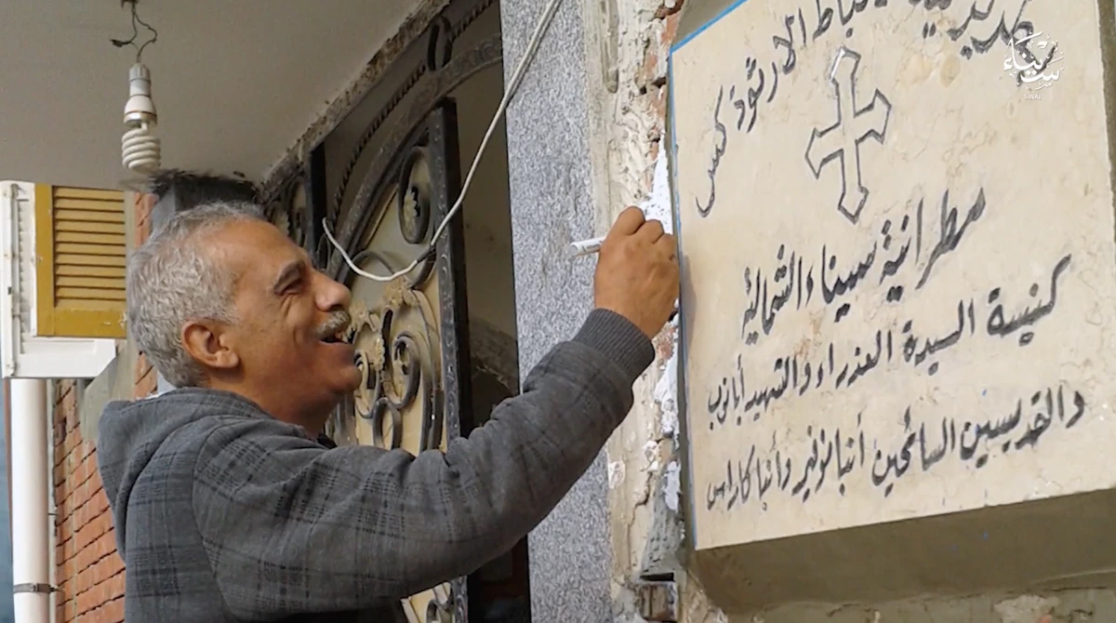 الارثوذكس
مطرانية سيناء الشمالية
كنيسة السيدة العذراء والشهيد أبانوب
والقديسين السائحين أنبا نوفير وأنبا كاراس
سيناء
SINAI